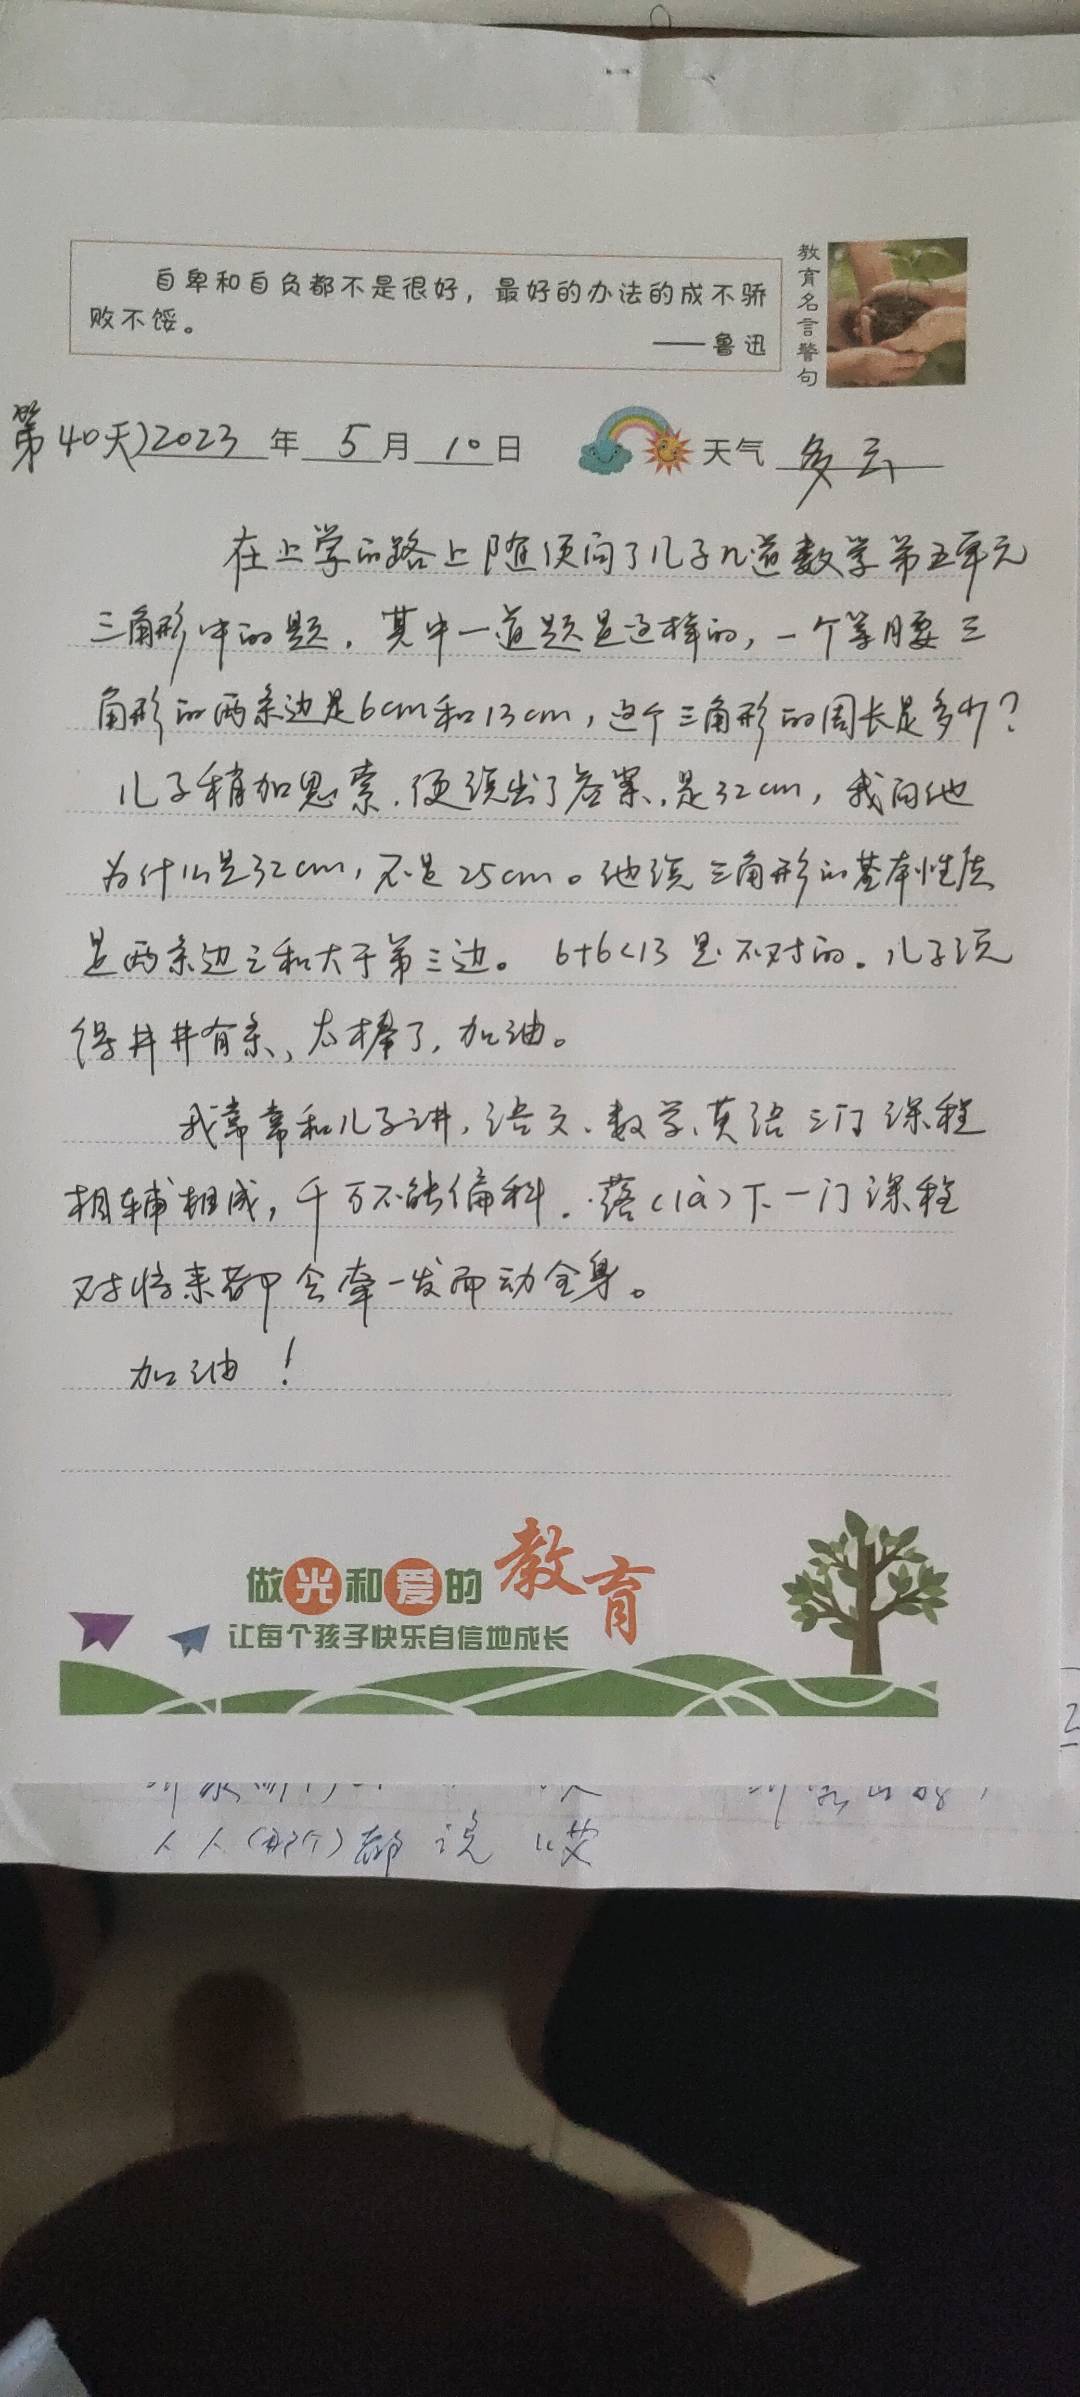 自卑和自负都不是很好，最好的办法的成不骄
败不馁。
——鲁迅
教育名言警句
第40天)2023年5月10日 天气 多云
在上学的路上随便问了儿子几道数学第五单元
三角形中的题，其中一道题是这样的，一个等腰三
角形的两条边是6cm和13cm，这个三角形的周长是多少？
儿子稍加思索，便说出了答案，是32cm，我问他
为什么是32cm，不是25cm。他说三角形的基本性质
是两条边之和大于第三边。6+6<13是不对的。儿子说
得井井有条，太棒了，加油。
我常常和儿子讲，语文、数学、英语三门课程
相辅相成，千万不能偏科．落(là)下一门课程
对将来都会牵一发而动全身。
加油！
做光和爱的教育
让每个孩子快乐自信地成长
人人(那个)都说 哎